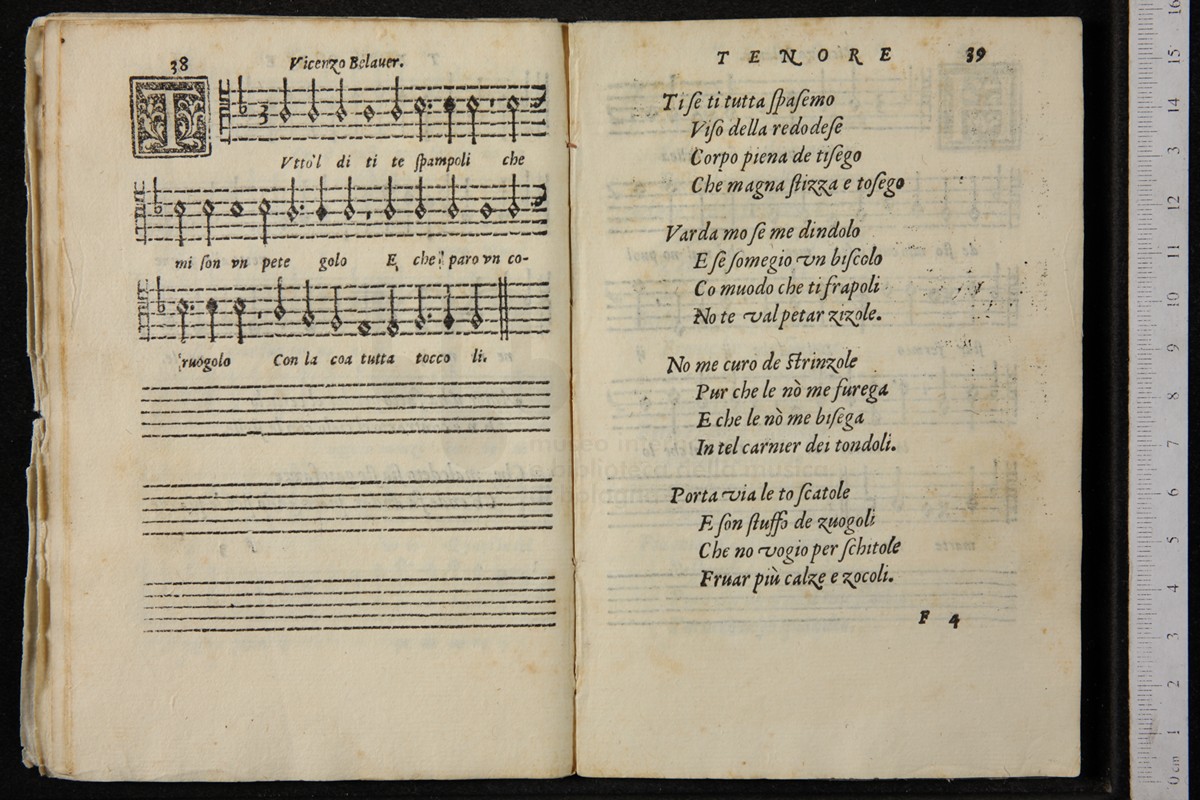 38
Vicenzo Bełauer.
T
Vtto'l di ti te ſpampoli che
mi ſon vn pete golo E che paro vn co-
ruogolo Con la coa tutta tocco li.
TENORE 39
Ti ſe ti tutta ſpaſemo
Viſo della redodeſe
Corpo piena de tiſego
Che magna ſtizza e toſego
Varda mo ſe me dindolo
E ſe ſomegio vn biſcolo
Co muodo che ti frapoli
No te val petar zizole.
No me curo de ſtrinzole
Pur che le nò me furega
E che le nò me biſega
In tel carnier dei tondoli.
Porta via le to ſcatole
E ſon ſtuffo de zuogoli
Che no vogio per ſchitole
Fruar più calze e zocoli.
F 4
museo inter
biblioteca della musica
bologna
0 cm 1 2 3 4 5 6 7 8 9 10 11 12 3 14 15 16